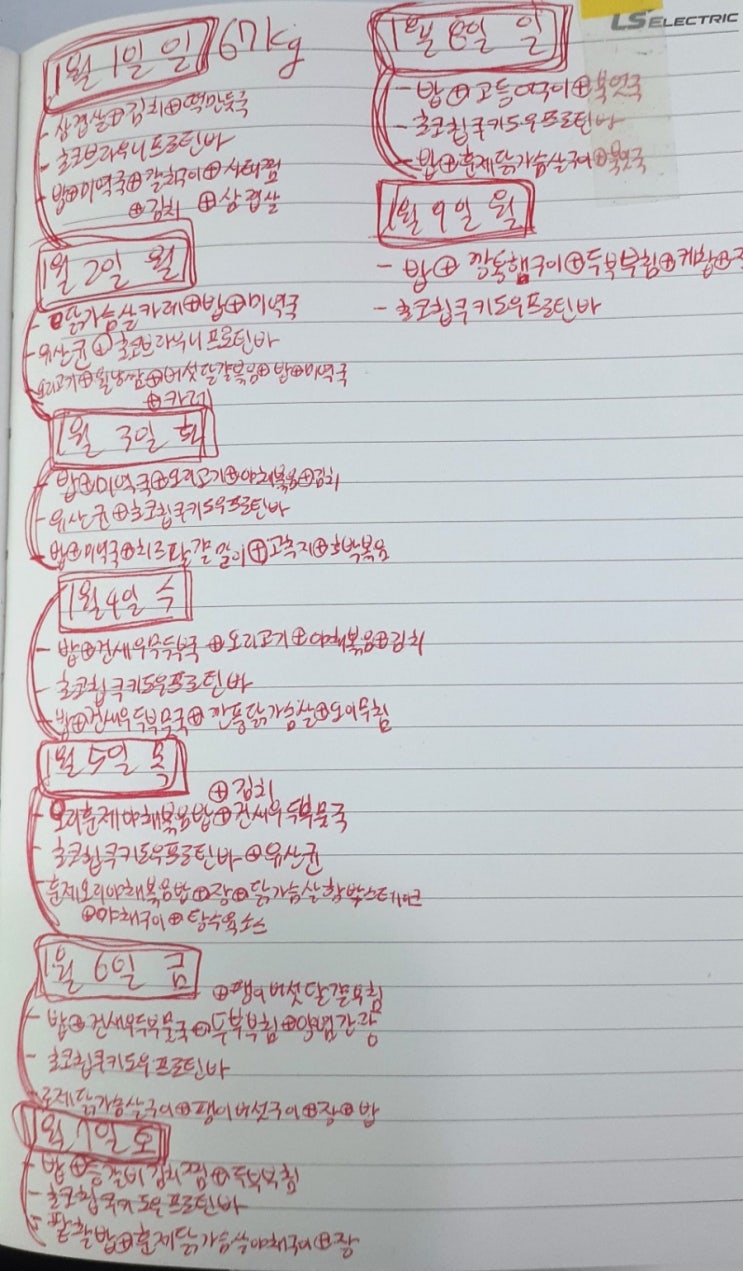 1월 1일 일 67kg
- 삼겹살⊕김치⊕떡만둣국
- 초코브라우니프로틴바
- 밥⊕미역국⊕갈치구이⊕사태찜
⊕김치 ⊕삼겹살
1월 2일 월
- 닭가슴살카레⊕밥⊕미역국
- 유산균⊕초코브라우니프로틴바
- 오리고기⊕월남쌈⊕버섯달걀볶음⊕밥⊕미역국
⊕카레
1월 3일 화
- 밥⊕미역국⊕오리고기⊕야채볶음⊕김치
- 유산균⊕초코칩쿠키도우프로틴바
- 밥⊕미역국⊕치즈달걀말이⊕고추지⊕호박볶음
1월 4일 수
- 밥⊕건새우무두부국⊕오리고기⊕야채볶음⊕김치
- 초코칩쿠키도우프로틴바
- 밥⊕건새우두부뭇국⊕깐풍닭가슴살⊕오이무침
1월 5일 목
⊕김치
- 오리훈제야채볶음밥⊕건새우두부뭇국
- 초코칩쿠키도우프로틴바⊕유산균
- 훈제오리야채볶음밥⊕장⊕닭가슴살함박스테이크
⊕야채구이⊕탕수육소스
1월 6일 금
⊕팽이버섯달걀부침
- 밥⊕건새우두부뭇국⊕두부부침⊕양념간장
- 초코칩쿠키도우프로틴바
- 훈제닭가슴살구이⊕팽이버섯구이⊕장⊕밥
1월 7일 토
- 밥⊕등갈비김치찜⊕두부부침
- 초코칩쿠키도우프로틴바
- 팥찰밥⊕훈제닭가슴살야채구이⊕장
LS ELECTRIC
1월 8일 일
- 밥⊕고등어구이⊕북엇국
- 초코칩쿠키도우프로틴바
- 밥⊕훈제닭가슴살구이⊕북엇국
1월 9일 월
- 밥⊕깡통햄구이⊕두부부침⊕케찹⊕
- 초코칩쿠키도우프로틴바